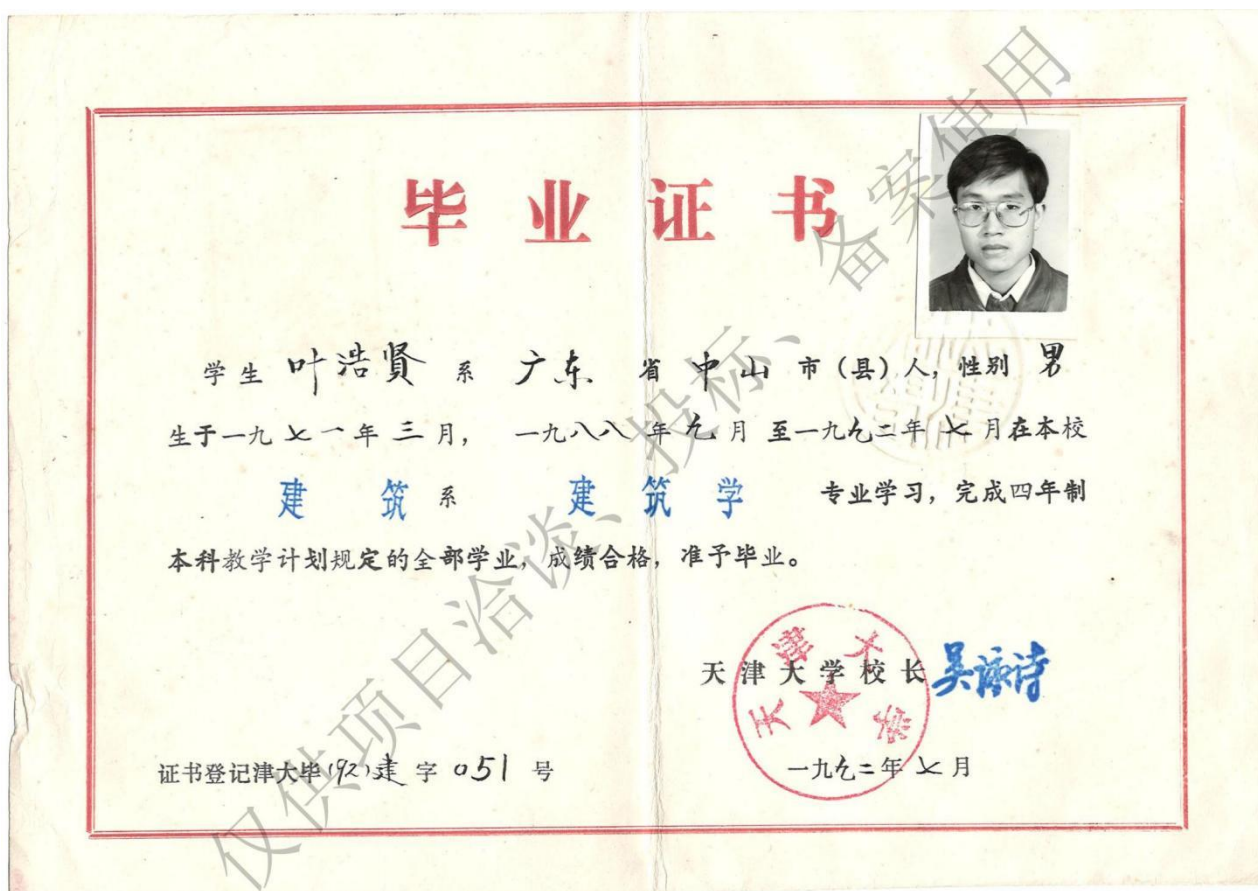 毕业证书
学生 叶浩贤 系 广东 省 中山 市(县)人, 性别 男
生于一九七一年三月, 一九八八年九月至一九九二年七月在本校
建筑系 建筑学 专业学习, 完成四年制
本科教学计划规定的全部学业, 成绩合格, 准予毕业。
天津大学校长 吴咏诗
天津大学
证书登记津大毕(92)建字051号
一九九二年七月
仅供项目洽谈、投标、备案使用